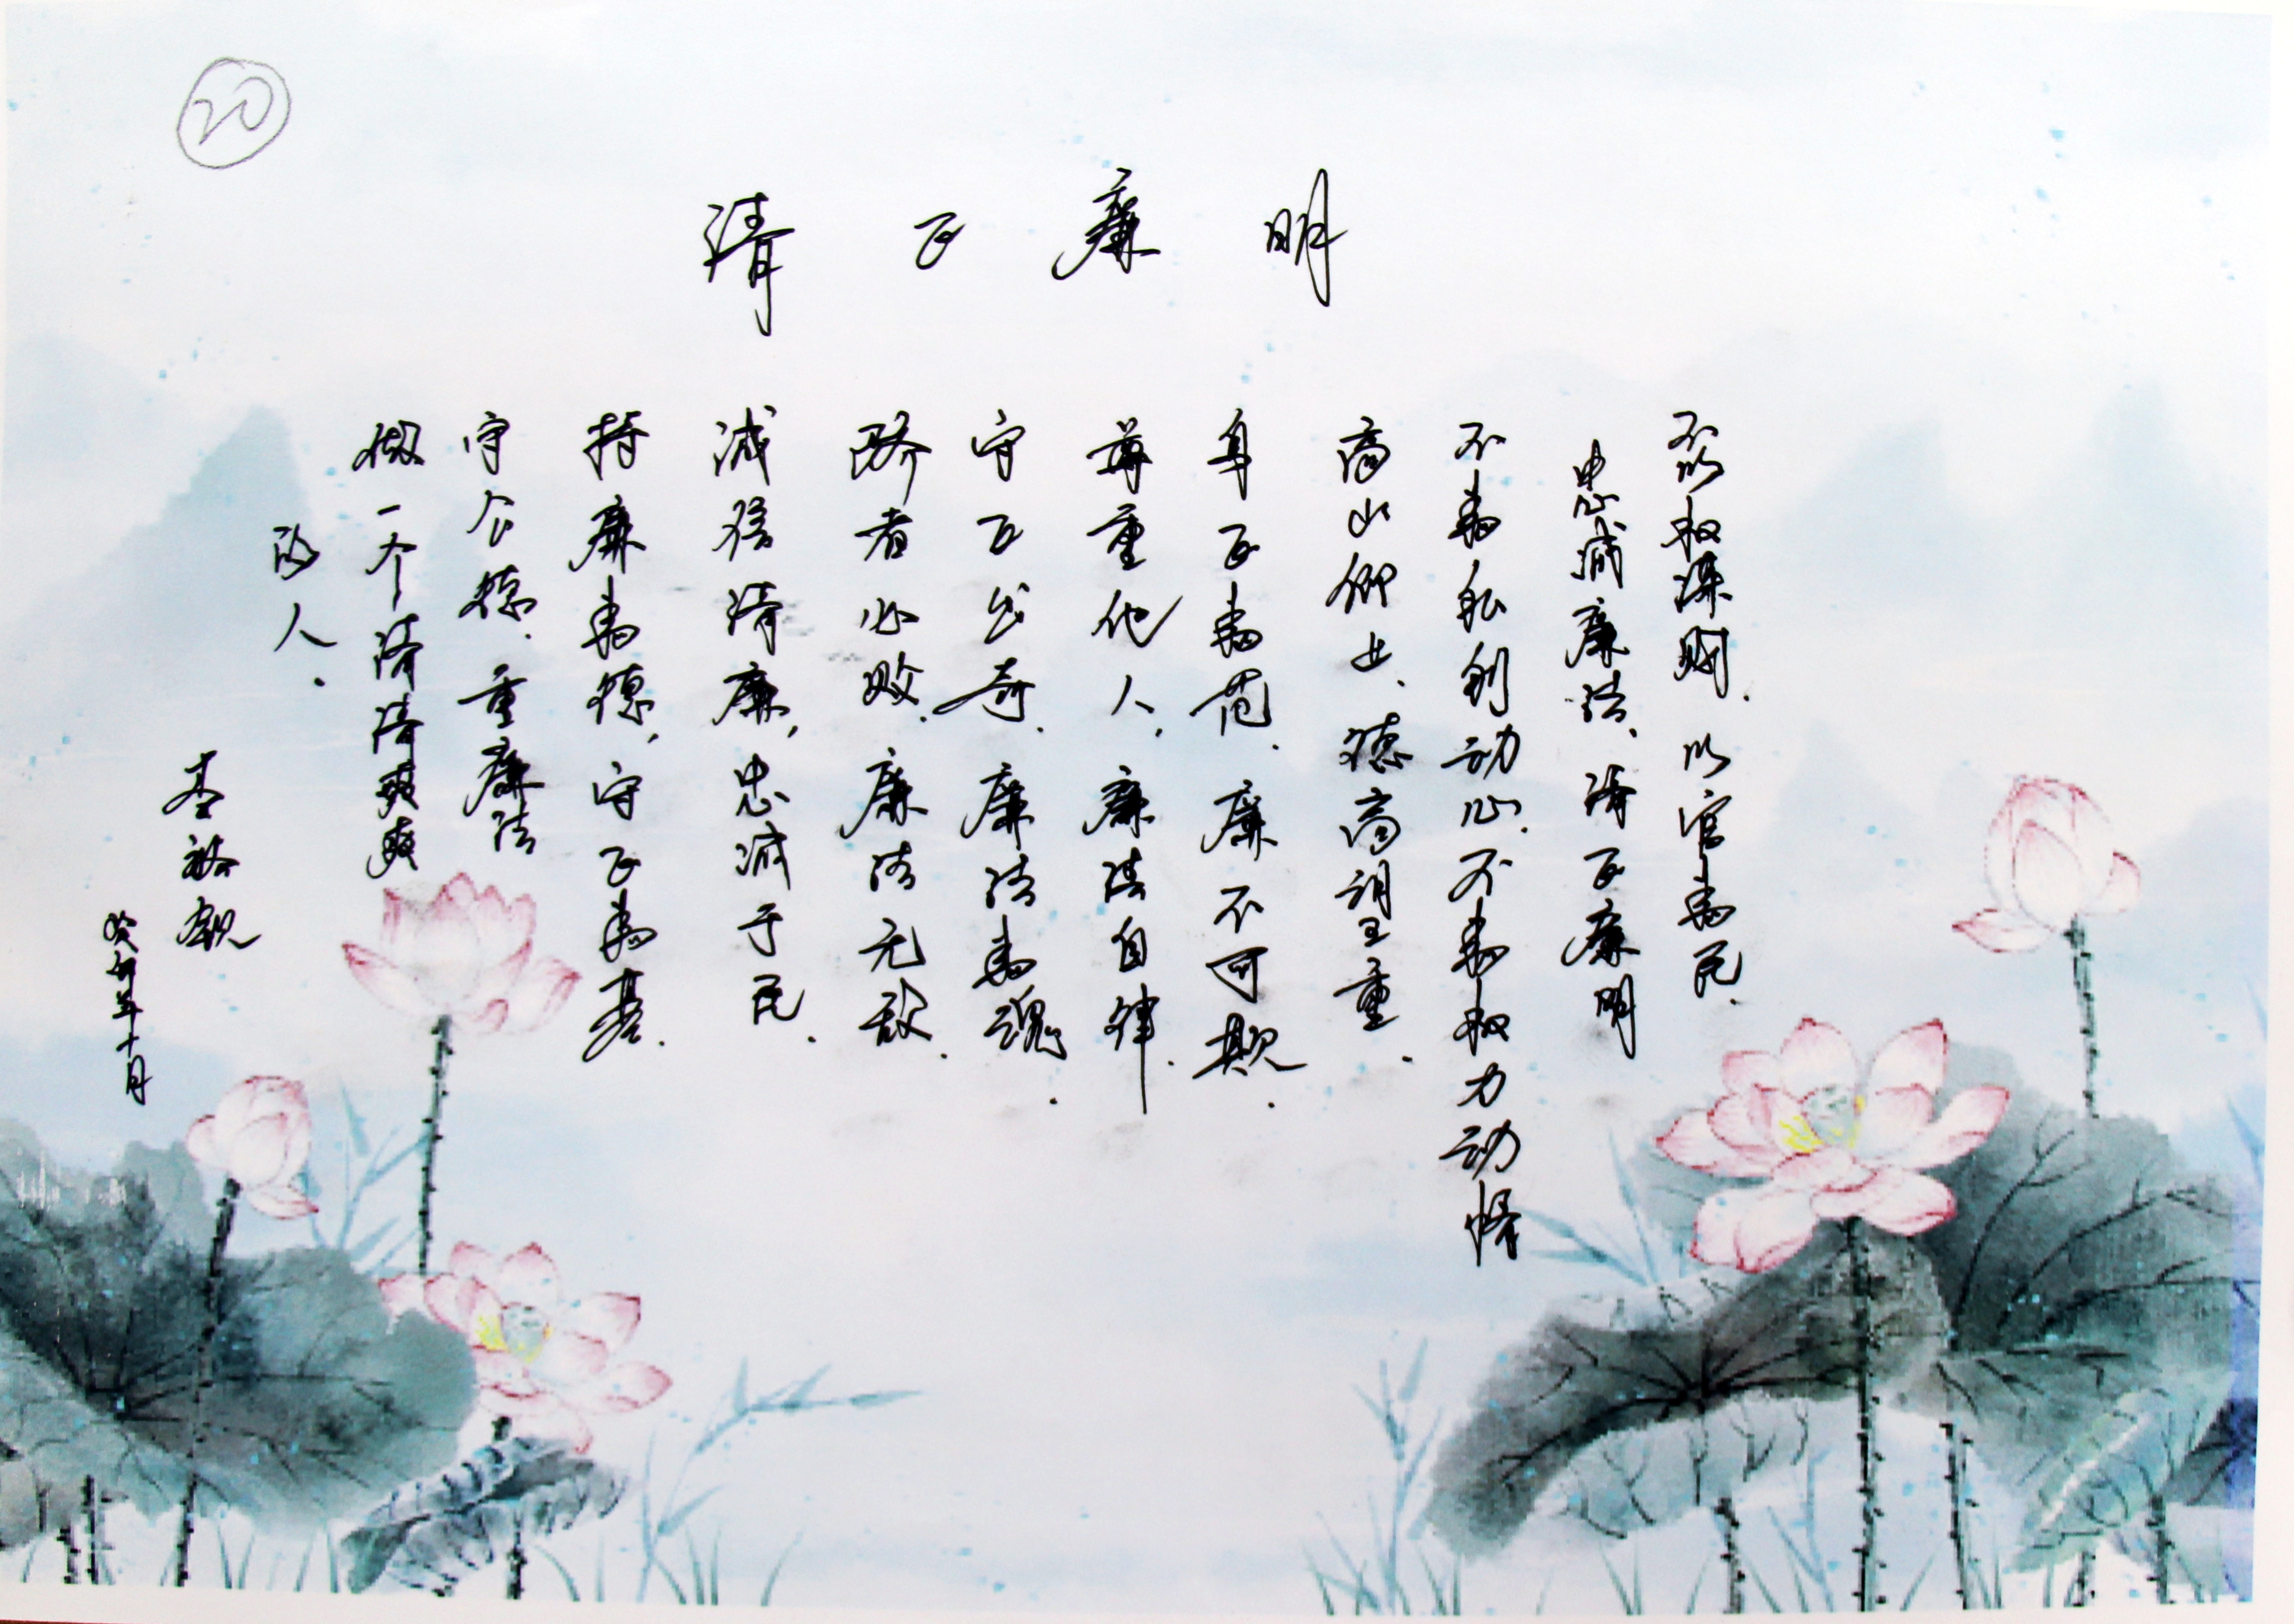 20
清正廉明
不以权谋财.以官为民.
忠诚廉洁、清正廉明
不为私利动心.不为权力动情
高山仰止、德高望重.
身正为范.廉不可欺.
尊重他人,廉洁自律.
守正出奇.廉洁为魂.
骄者必败.廉洁无敌.
诚信清廉,忠诚于民.
持廉为德,守正为基.
守公德.重廉洁
做一个清清爽爽
的人.
癸卯年十月